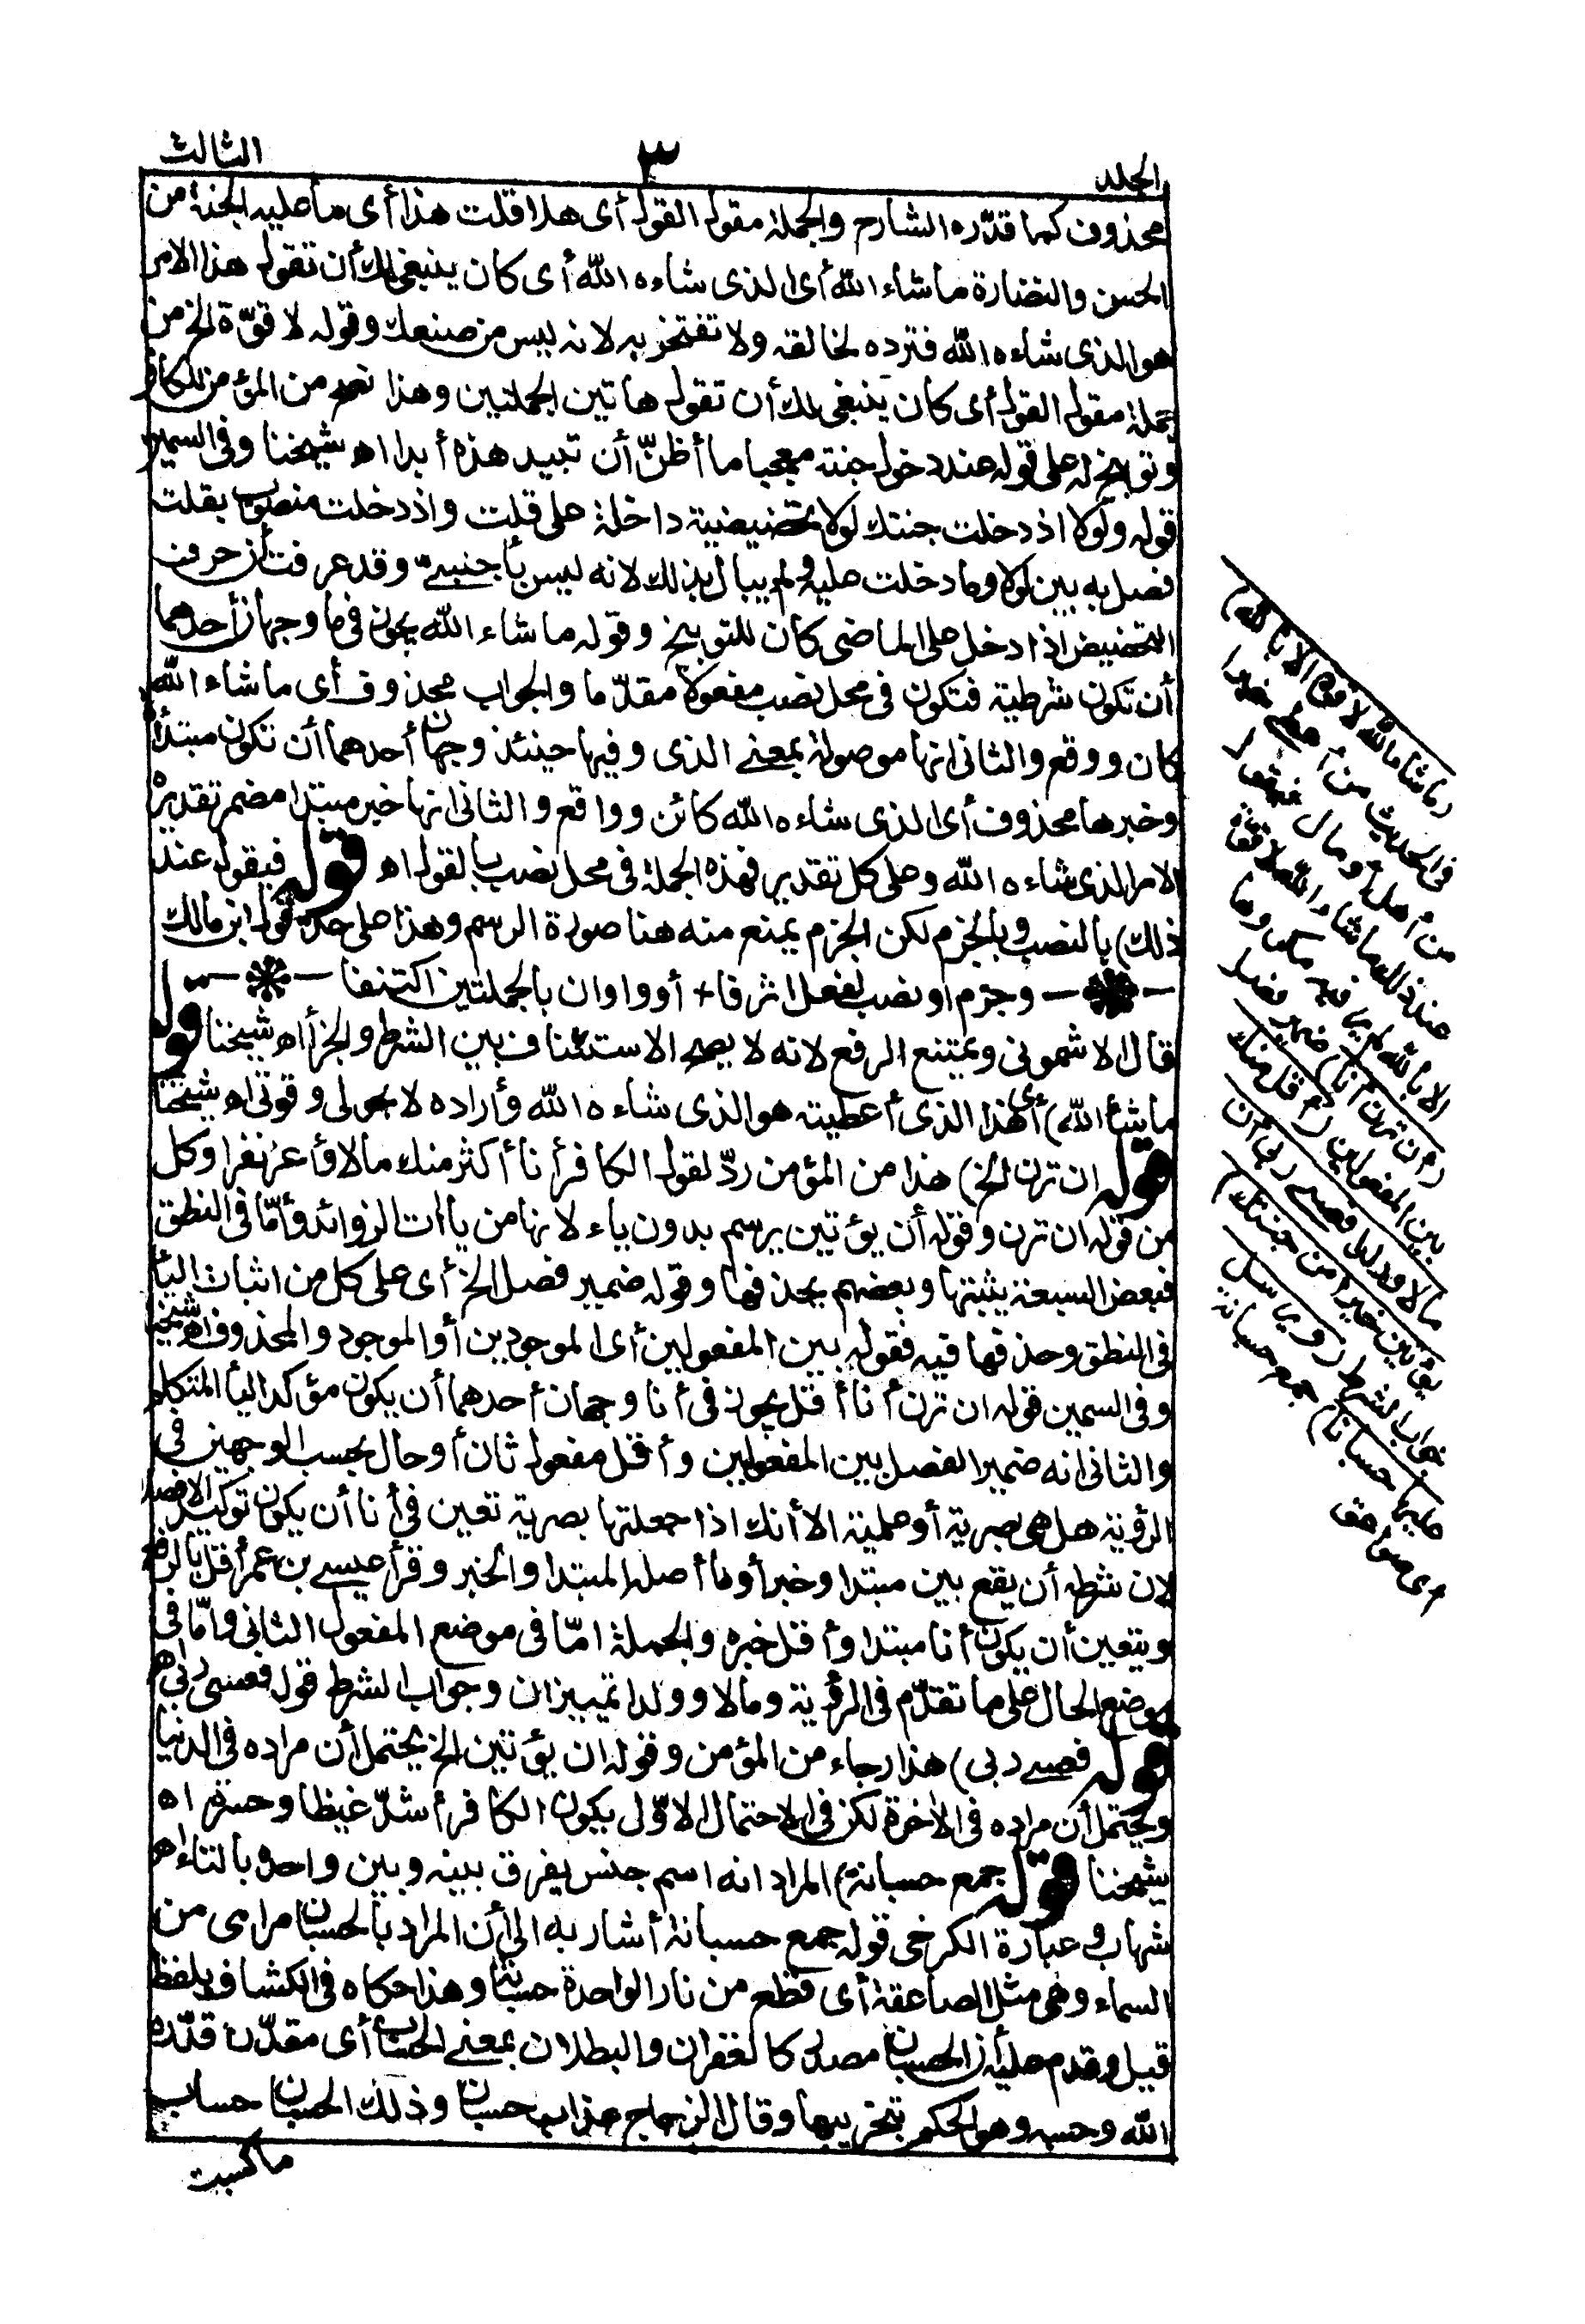 الجلد
٣
الثالث
محذوف كما قدّره الشارح والجملة مقول القول أى هلا قلت هذا أى ما عليه الجنة من
الحسن والنضارة ما شاء الله أى الذى شاءه الله أى كان ينبغى لك أن تقول هذا الامر
هو الذى شاءه الله فترده لخالقه ولا تفتخر به لانه ليس من صنعك وقوله لا قوّة الخ من
جملة مقول القول أى كان ينبغى لك أن تقول هاتين الجملتين وهذا نصح من المؤمن للكافر
وتوبيخ له على قوله عند دخول جنته معجبا ما أظنّ أن تبيد هذه أبدا اه شيخنا وفى السمين
قوله ولولا اذ دخلت جنتك لولا تحضيضية داخلة على قلت واذ دخلت منصوب بقلت
فصل به بين لولا وما دخلت عليه ولم يبال بذلك لانه ليس بأجنبىّ وقد عرفت أن حرف
التحضيض اذا دخل على الماضى كان للتوبيخ وقوله ما شاء الله يجوز فى ما وجهان أحدهما
أن تكون شرطية فتكون فى محل نصب مفعولا مقدّما والجواب محذوف أى ما شاء الله
كان ووقع والثانى انها موصولة بمعنى الذى وفيها حينئذ وجهان أحدهما أن تكون مبتدأ
وخبرها محذوف أى الذى شاءه الله كائن وواقع والثانى انها خبر مبتدا مضمر تقديره
الامر الذى شاءه الله وعلى كل تقدير فهذه الجملة فى محل نصب بالقول اه قوله فيقول عند
ذلك) بالنصب وبالجزم لكن الجزم يمنع منه هنا صورة الرسم وهذا على حدّ قول ابن مالك
وجزم او نصب لفعل اثر فا + أو واو ان بالجملتين اكتنفا
قال الاشمونى ويمتنع الرفع لانه لا يصح الاستئناف بين الشرط والجزأ اه شيخنا قوله
ما شأ الله) أى هذا الذى أعطيته هو الذى شاءه الله وأراده لا بحولى وقوتى اه شيخنا
قوله ان ترن الخ) هذا من المؤمن ردّ لقول الكافر أنا أكثر منك مالا وأعز نفرا وكل
من قوله ان ترن وقوله أن يؤتين يرسم بدون ياء لانها من ياآت الزوائد وأمّا فى النطق
فبعض السبعة يثبتها وبعضهم يحذفها وقوله ضمير فصل الخ أى على كل من اثبات اليأ
فى النطق وحذفها فيه فقوله بين المفعولين أى الموجودين أو الموجود والمحذوف اه شيخنا
وفى السمين قوله ان ترن أنا أقل يجوز فى أنا وجهان أحدهما أن يكون مؤكدا ليأ المتكلم
والثانى انه ضمير الفصل بين المفعولين وأقل مفعول ثان أو حال بحسب الوجهين فى
الرؤية هل هى بصرية أو علمية الا أنك اذا جعلتها بصرية تعين فى أنا أن يكون توكيدا لا فصلا
لان شرطه أن يقع بين مبتدا وخبر أو ما أصله المبتدا والخبر وقرأ عيسى بن عمر أقل بالرفع
ويتعين أن يكون أنا مبتدا وأقل خبره والجملة امّا فى موضع المفعول الثانى وامّا فى
موضع الحال على ما تقدّم فى الرؤية ومالا وولدا تمييزان وجواب الشرط قوله فعسى ربى اه
قوله فعسى ربى) هذا رجاء من المؤمن وقوله ان يؤتين الخ يحتمل أن مراده فى الدنيا
ويحتمل أن مراده فى الآخرة لكن فى الاحتمال الاوّل يكون الكافر أشدّ غيظا وحسرة اه
شيخنا قوله جمع حسبانة) المراد انه اسم جنس يفرق بينه وبين واحده بالتاء اه
شهاب وعبارة الكرخى قوله جمع حسبانة أشار به الى أن المراد بالحسبان مرامى من
السماء وهى مثل الصاعقة أى قطع من نار الواحدة حسبانة وهذا حكاه فى الكشاف بلفظ
قيل وقدم عليه أن الحسبان مصدر كالغفران والبطلان بمعنى الحساب أى مقدّرا قدّره
الله وحسبه وهو الحكم بتخريبها وقال الزجاج عذاب حسبان وذلك الحسبان حساب
ما كسبت
(ما شاء الله لا قوة الا بالله)
فى الحديث من أعطى خيرا
من أهل أو مال فيقول
عند ذلك ما شاء الله لا قوة
الا بالله لم ير فيه مكروها
(ان ترن أنا) ضمير فصل
بين المفعولين (أقل منك
مالا وولدا فعسى ربى أن
يؤتين خيرا من جنتك)
جواب الشرط (ويرسل
عليها حسبانا) جمع حسبانة
أى صواعق